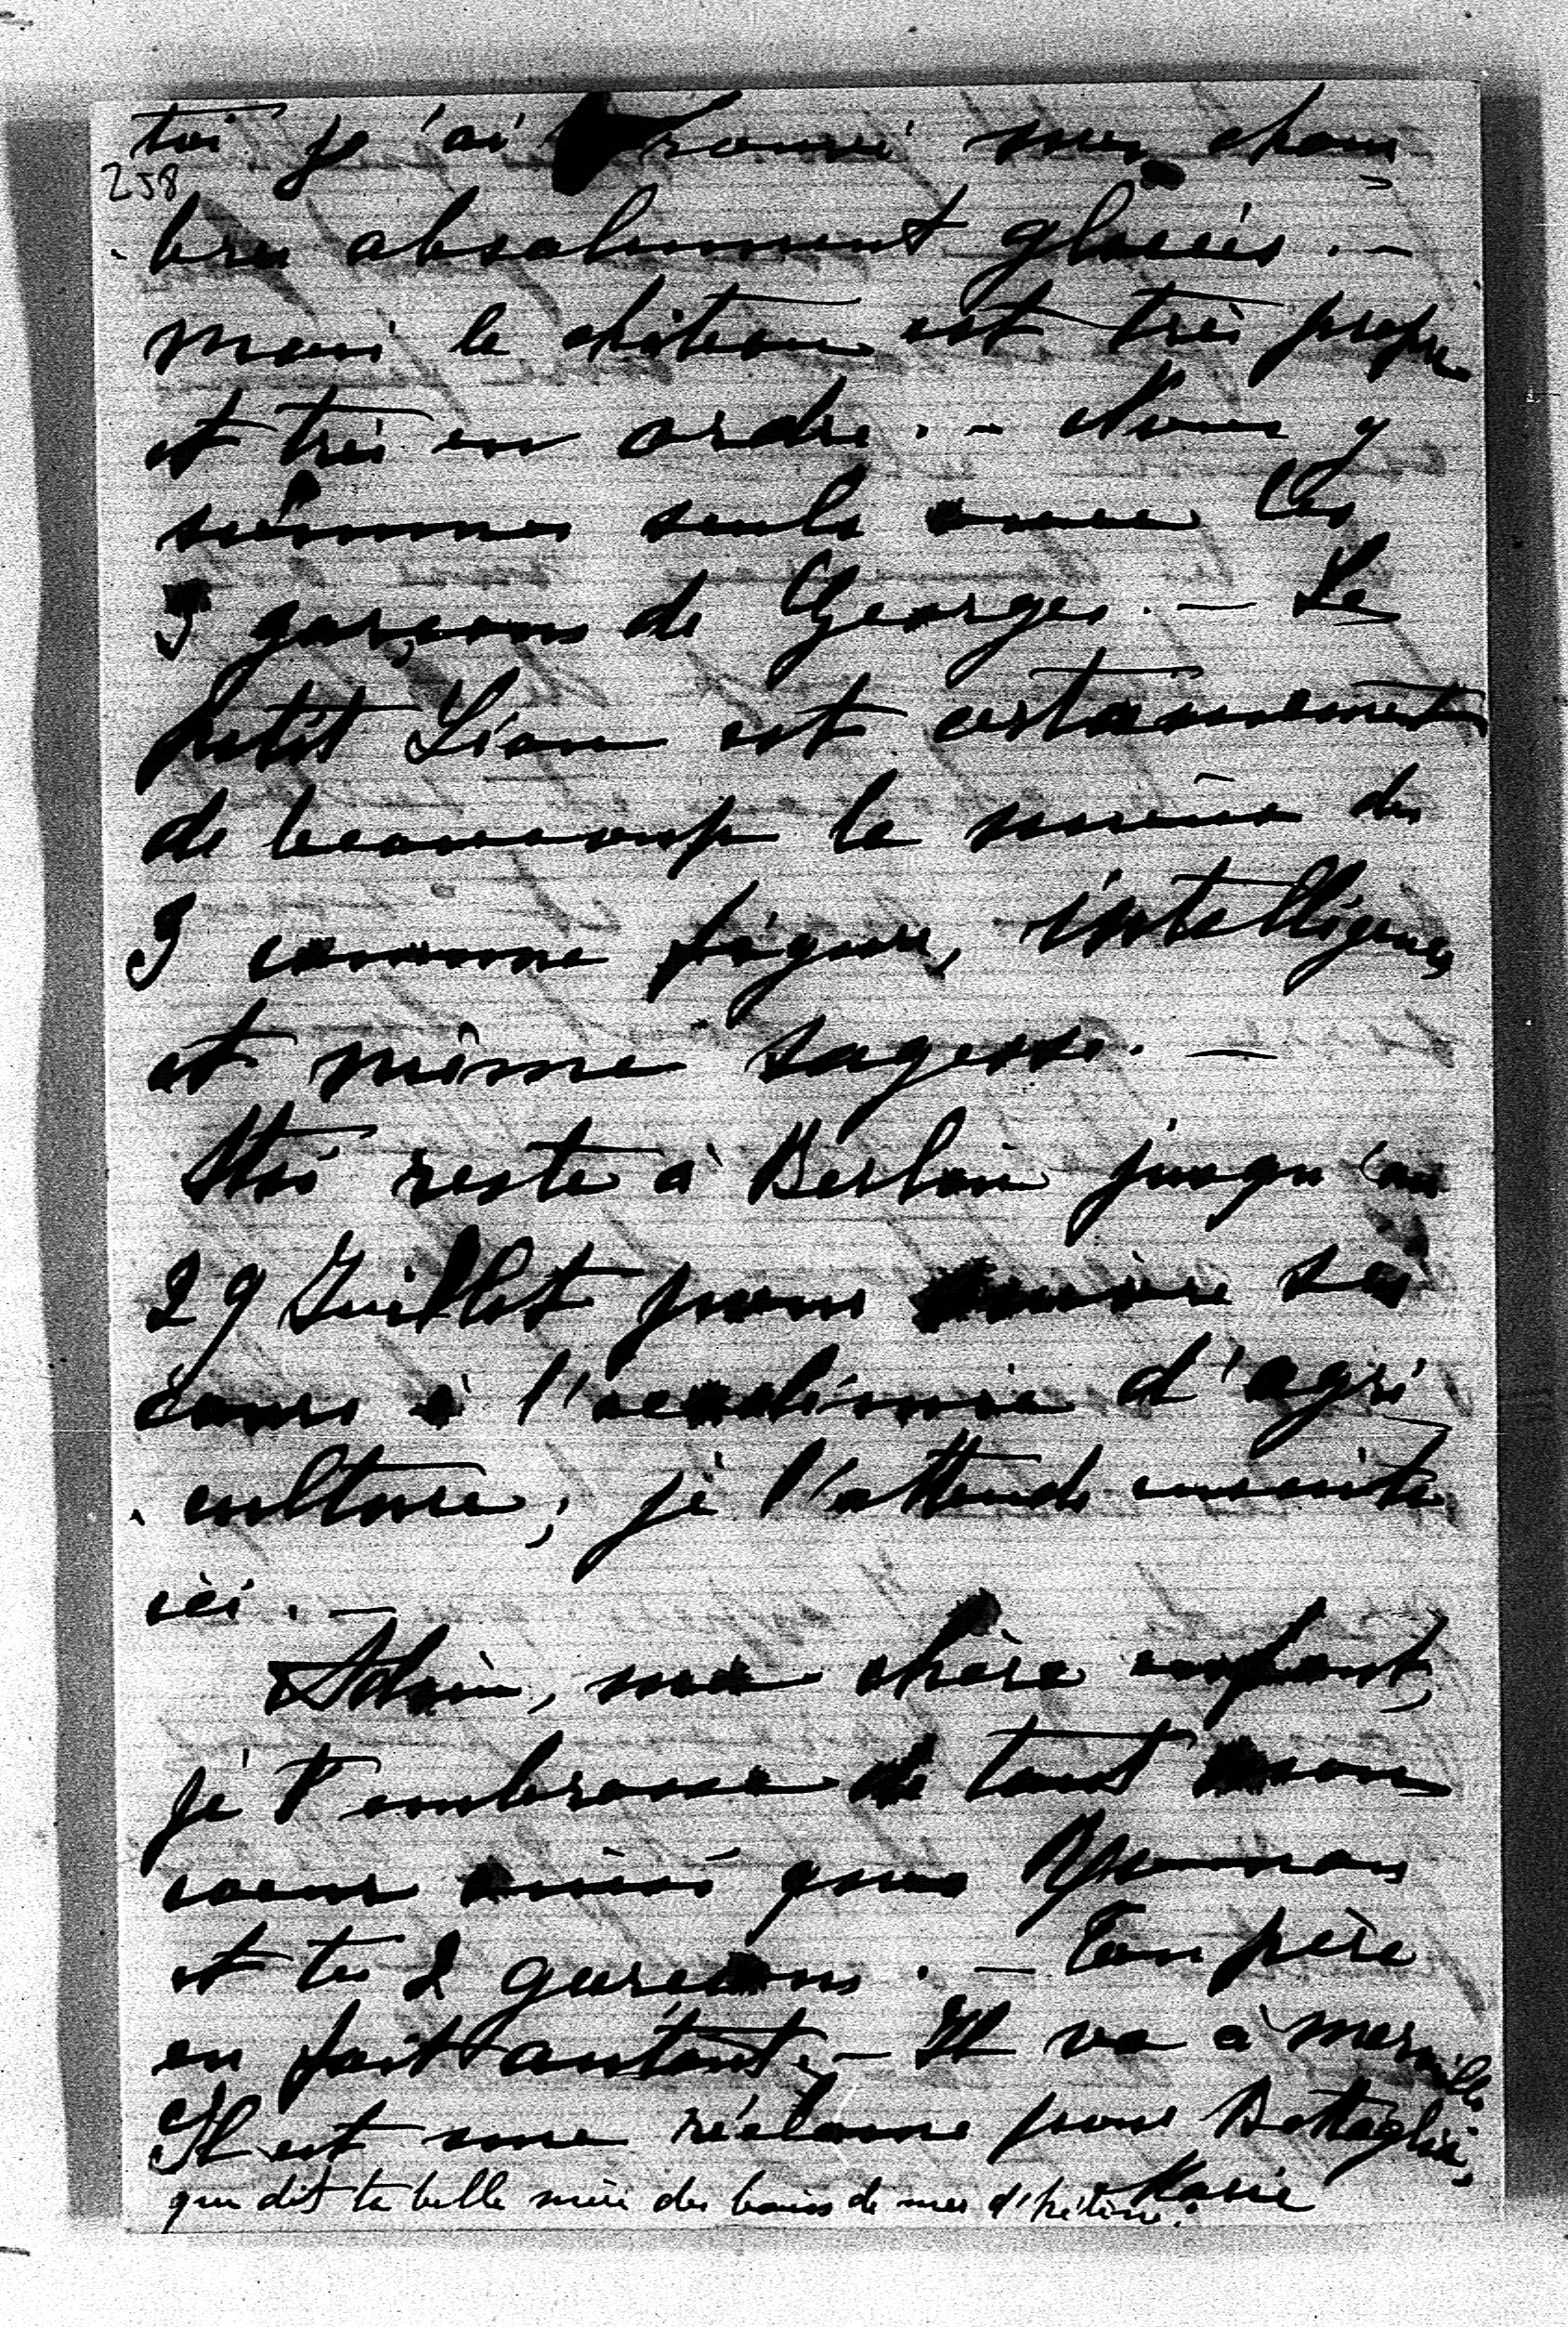 toi j'ai trouvé mes cham
258
bres absolument glacées. —
mais le château est très propre
et très en ordre. — Nous y
sommes seuls avec les
3 garçons de Georges. — Le
petit Léon est certainement
de beaucoup le mieux des
3 comme figure, intelligence
et même sagesse. —
reste à Berlin jusqu'au
29 Juillet pour suivre ses
cours à l'académie d'agri
culture; je l'attends ensuite
ici. —
Adieu, ma chère enfant,
je t'embrasse de tout mon
coeur ainsi que
et tes 2 garçons. — Ton père
en fait autant. — Il va à merveille
Il est une réclame pour Battaglia,
que dit ta belle mère des bains de mer d'hélène? Marie